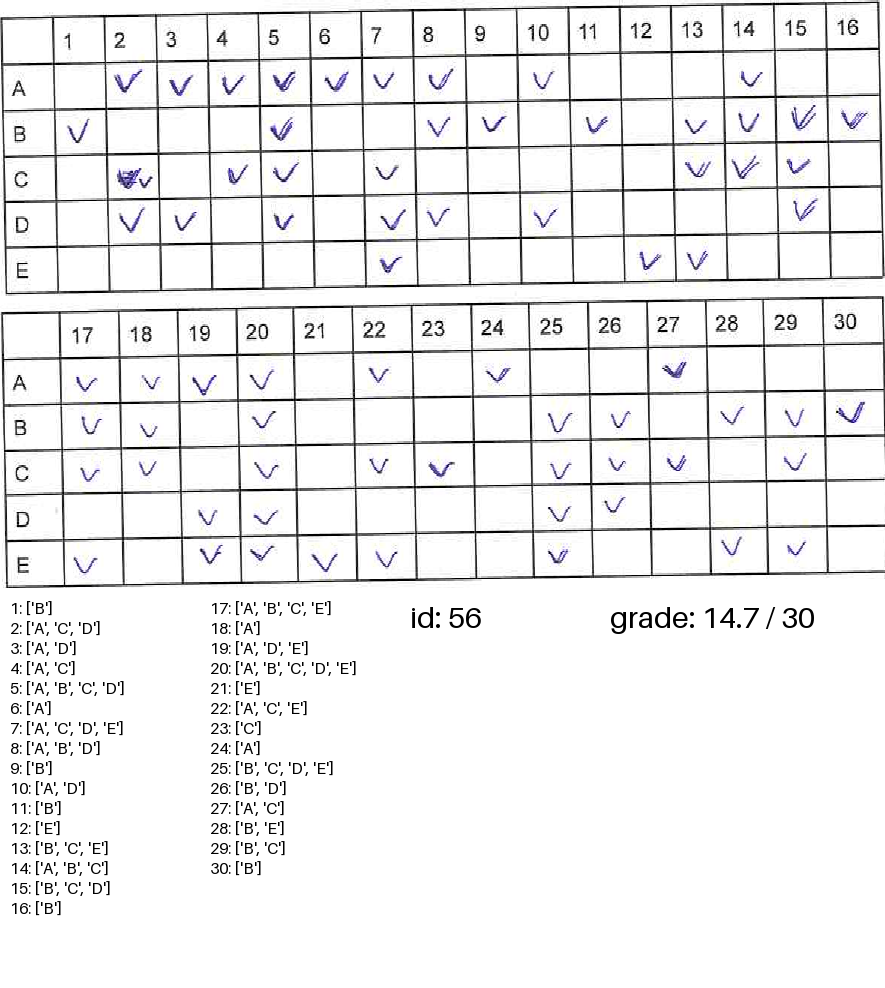 1 2 3 4 5 6 7 8 9 10 11 12 13 14 15 16
A
B
C
D
E
17 18 19 20 21 22 23 24 25 26 27 28 29 30
A
B
C
D
E
1: ['B']
2: ['A', 'C', 'D']
3: ['A', 'D']
4: ['A', 'C']
5: ['A', 'B', 'C', 'D']
6: ['A']
7: ['A', 'C', 'D', 'E']
8: ['A', 'B', 'D']
9: ['B']
10: ['A', 'D']
11: ['B']
12: ['E']
13: ['B', 'C', 'E']
14: ['A', 'B', 'C']
15: ['B', 'C', 'D']
16: ['B']
17: ['A', 'B', 'C', 'E']
18: ['A']
19: ['A', 'D', 'E']
20: ['A', 'B', 'C', 'D', 'E']
21: ['E']
22: ['A', 'C', 'E']
23: ['C']
24: ['A']
25: ['B', 'C', 'D', 'E']
26: ['B', 'D']
27: ['A', 'C']
28: ['B', 'E']
29: ['B', 'C']
30: ['B']
id: 56
grade: 14.7 / 30